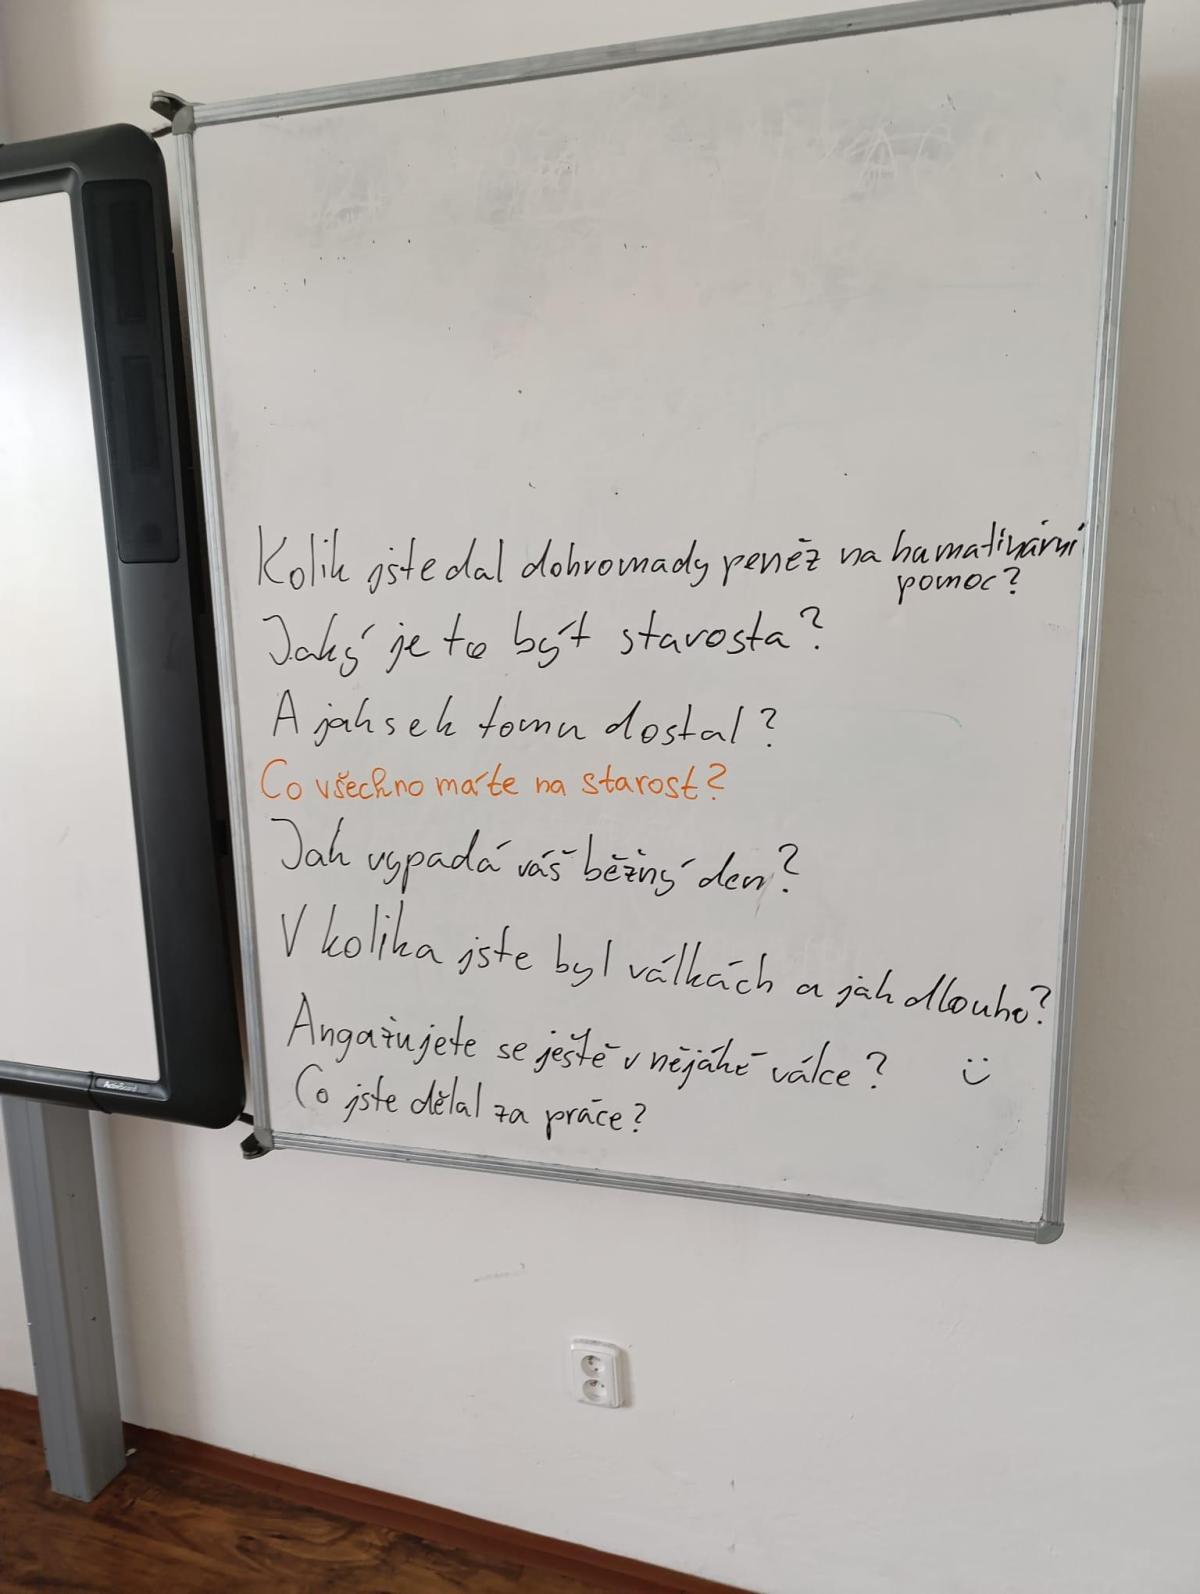 Kolik jste dal dohromady peněz na humatinární
pomoc?
Jaký je to být starosta?
A jak se k tomu dostal?
Co všechno máte na starost?
Jak vypadá váš běžný den?
V kolika jste byl válkách a jak dlouho?
Angažujete se ještě v nějáké válce? :)
Co jste dělal za práce?
ActivBoard